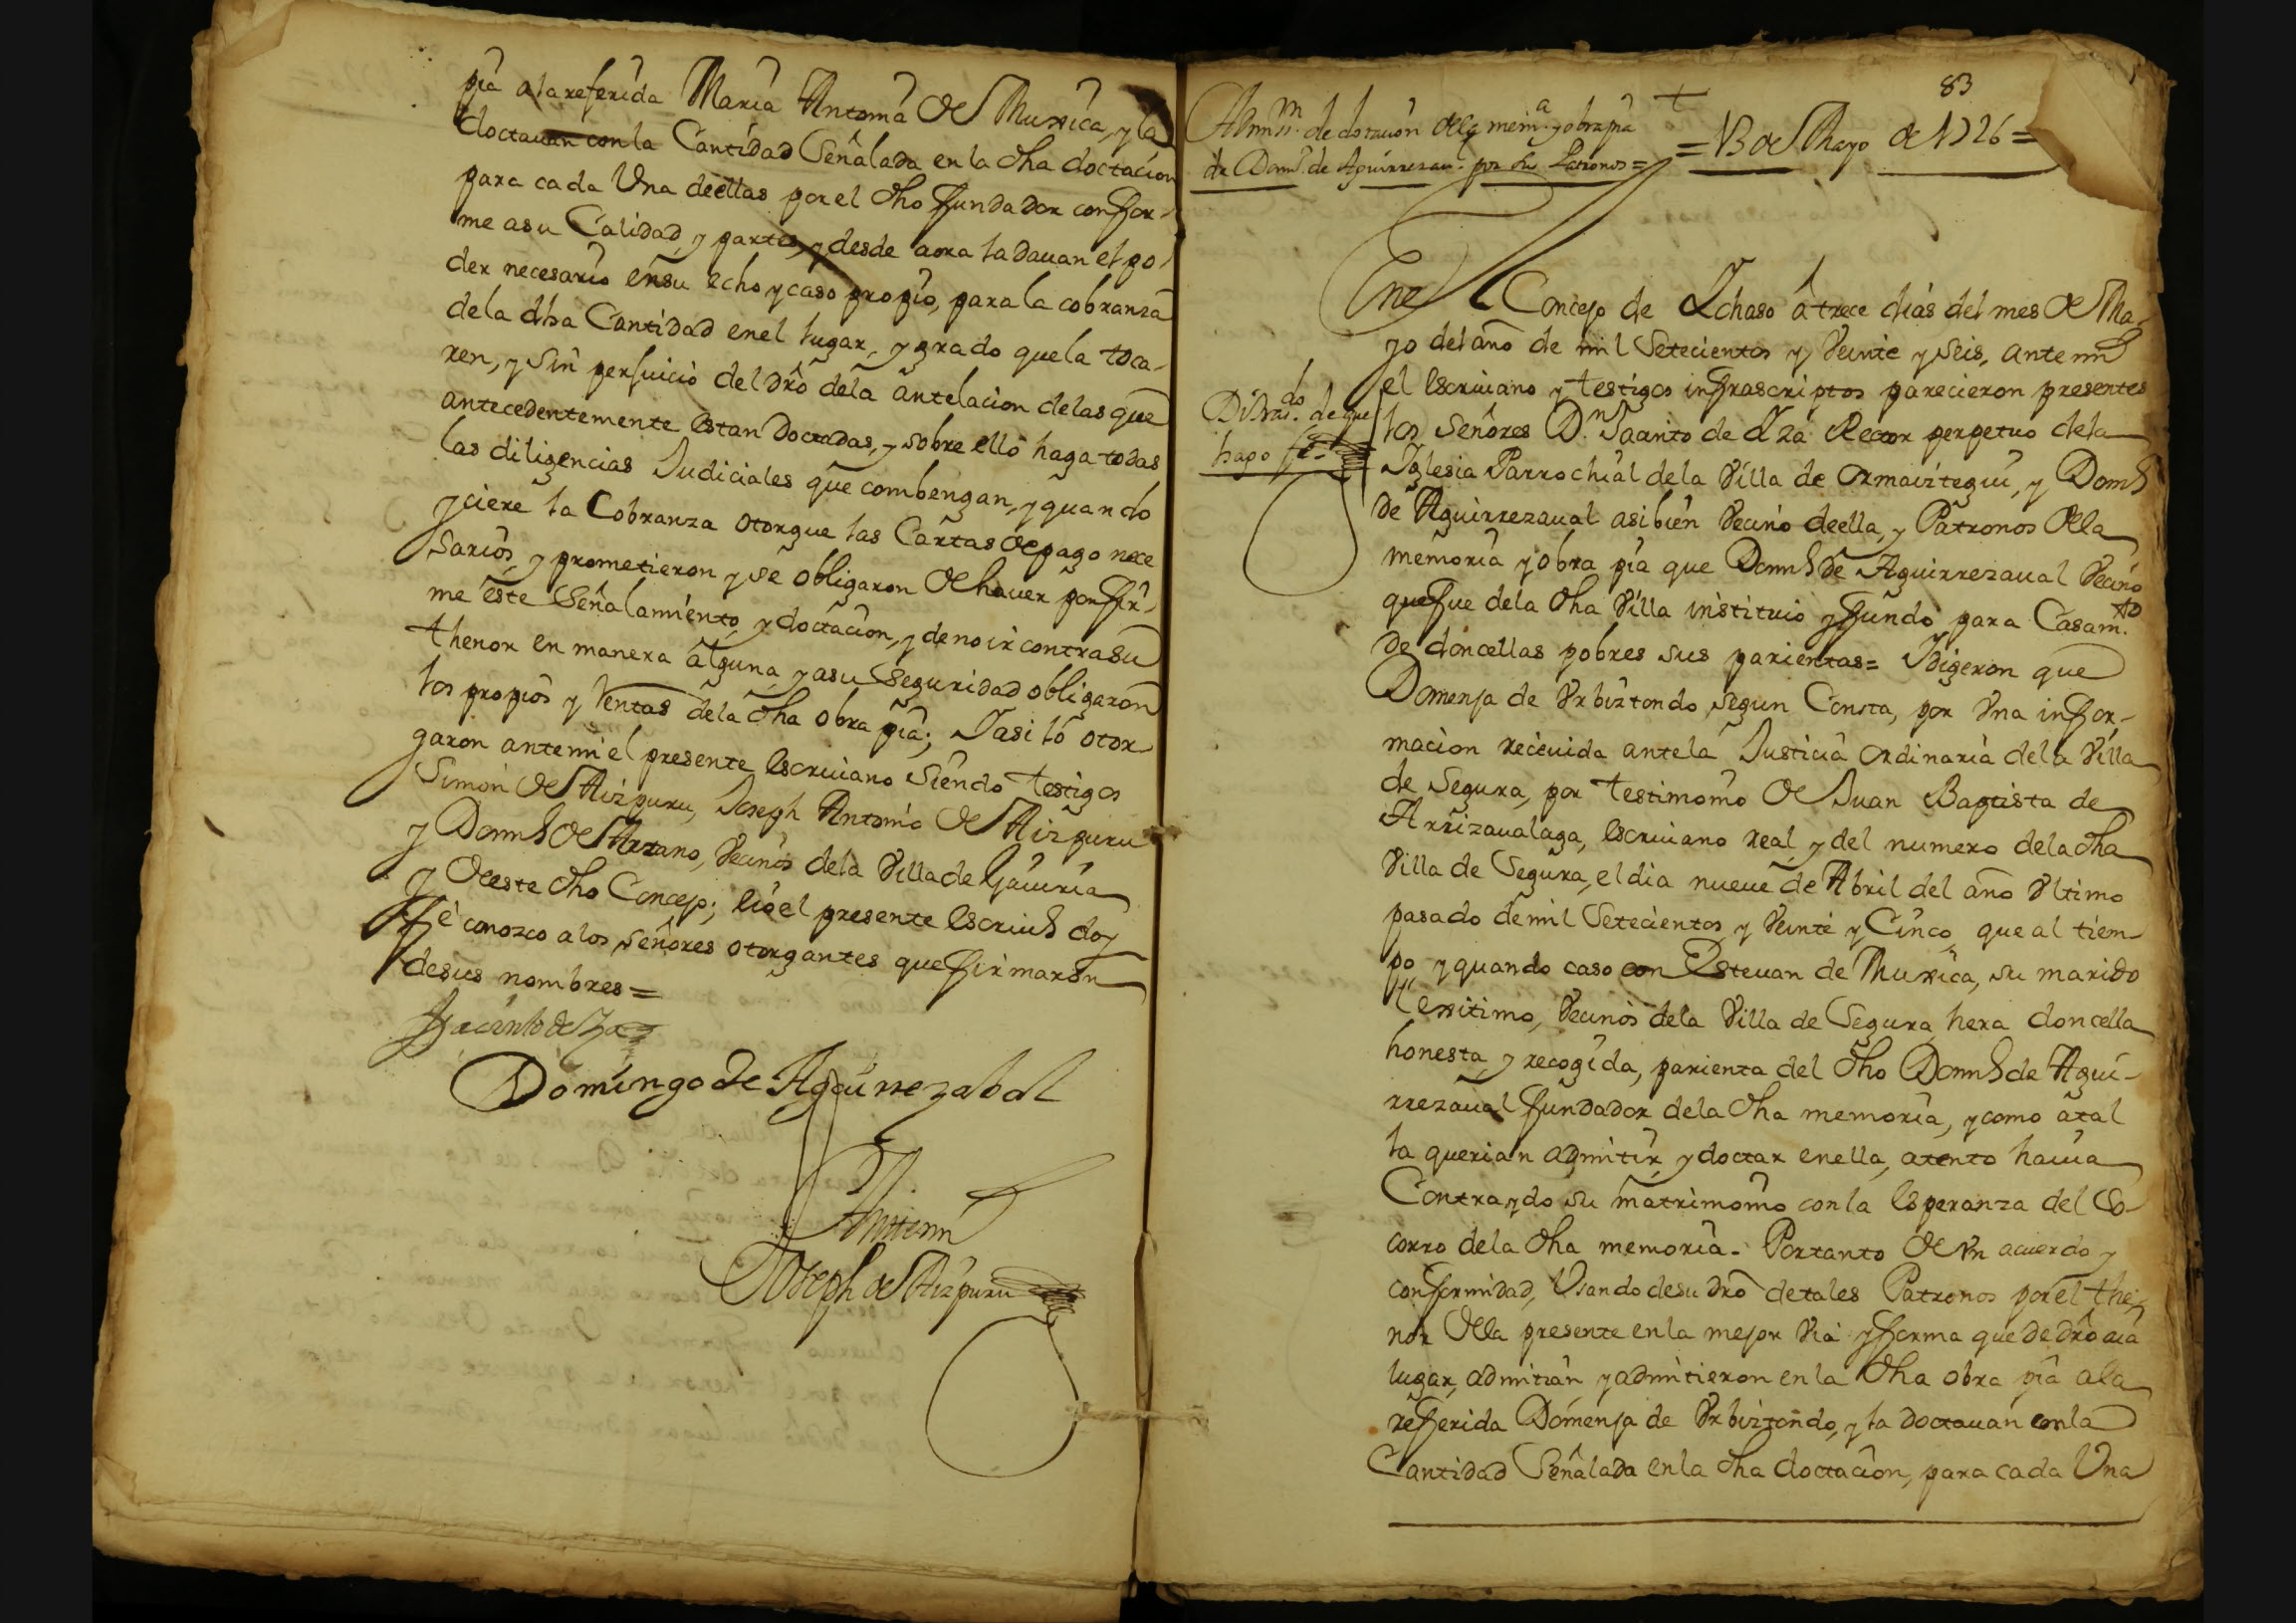 pia a la referida Maria Antonia de Muxica, y la
doctauan con la Cantidad Señalada en la dha doctacion
para cada Una de ellas por el dho fundador confor-
me a su Calidad, y partes, y desde aora la dauan el po-
der necesario en su echo y caso propio, para la cobranza
de la dha Cantidad en el lugar, y grado que la toca-
ren, y sin perjuicio del dro de la antelacion de las que
antecedentemente estan Doctadas, y sobre ello haga todas
las diligencias Judiciales que combengan, y quando
yciere la Cobranza otorgue las Cartas de pago nece
sarios, y prometieron y se obligaron de hauer por fir-
me este Señalamiento, y doctacion, y de no ir contra su
thenor en manera alguna, y a su Seguridad obligaron
los propios y Rentas de la dha obra pia; Y asi lo otor-
garon ante mi el presente escriuano Siendo testigos
Simon de Aizpuru, Joseph Antonio de Aizpuru
y Domº de Arzano, Vecinos de la Villa de Gauiria
y de este dho Concejo; e io el presente escriuº doy
fe conozco a los señores otorgantes que firmaron
de sus nombres=
Jacinto de Yza
Domingo de Aguirrezabal
Ante mi
Joseph de Aizpuru
83
de dotacion de la mem.ª y obra pia
de Dom.º de Aguirrezau.l por su Patronos=
= 13 de Mayo de 1726 =
En el Concejo de Ychaso â trece dias del mes de Ma-
yo del año de mil Setecientos y Veinte y Seis, ante mi
el escriuano y testigos infrascriptos parecieron presentes
los Señores D.n Jacinto de Yza Rector perpetuo de la
de que
hago fee
Yglesia Parrochial de la Villa de Ormaiztegui, y Domº
de Aguirrezaual asi bien Vecino de ella, y Patronos de la
memoria y obra pia que Domº de Aguirrezaual Vecino
que fue de la dha Villa instituio y fundó para Casam.to
de doncellas pobres sus parientas= Y digeron que
Domenja de Vrbiztondo, segun Consta, por Vna infor-
macion reciuida ante la Justicia ordinaria de la Villa
de Segura, por testimonio de Juan Baptista de
Arrizaualaga, escriuano real, y del numero de la dha
Villa de Segura, el dia nueue de Abril del año Vltimo
pasado de mil Setecientos y Veinte y Cinco, que al tiem-
po, y quando caso con Esteuan de Muxica, su marido
lexitimo, Vecinos de la Villa de Segura, hera doncella
honesta, y recogida, parienta del dho Domº de Agui-
rrezaual fundador de la dha memoria, y como a tal
la querian admitir, y doctar en ella, atento hauia
Contraydo su matrimonio con la esperanza del So-
corro de la dha memoria. Portanto de Vn acuerdo y
conformidad, Vsando de su dro de tales Patronos por el the-
nor de la presente en la mejor Via y forma que de dro aia
lugar, admitian, y admitieron en la dha obra pia a la
referida Domenja de Vrbiztondo, y la doctauan con la
Cantidad Señalada en la dha doctacion, para cada Una